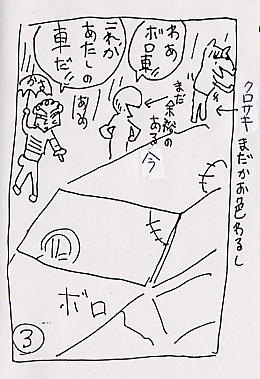 クロサキ まだかお色わるし
わあ
ボロ車!!
まだ
余裕の
ある
今
これが
あたしの
車だ!!
かさ
あめ
ボロ
3